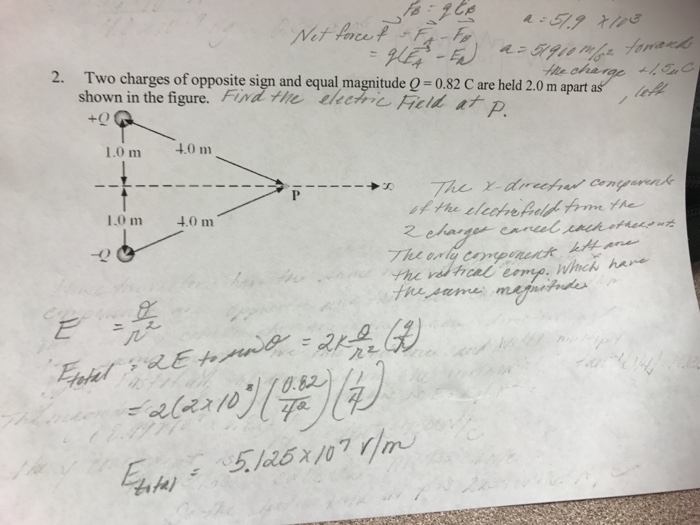 F_B = qE_B
a = 51.9 x 10^3
Net force F = F_A - F_B
= q(E_A - E_B) a = 51900 m/s^2 towards
the charge +1.5μC, left
2. Two charges of opposite sign and equal magnitude Q = 0.82 C are held 2.0 m apart as
shown in the figure. Find the electric Field at P.
+Q
1.0 m 4.0 m
P x
1.0 m 4.0 m
-Q
The x-direction components
of the electric field from the
2 charges cancel each other out.
The only components left are
the vertical comp. which have
the same magnitudes
E = Q/r^2
E total = 2E = 2k Q/r^2
= 2(2x10^8)(0.82/4^2)(1/4)
E total = 5.125 x 10^7 V/m